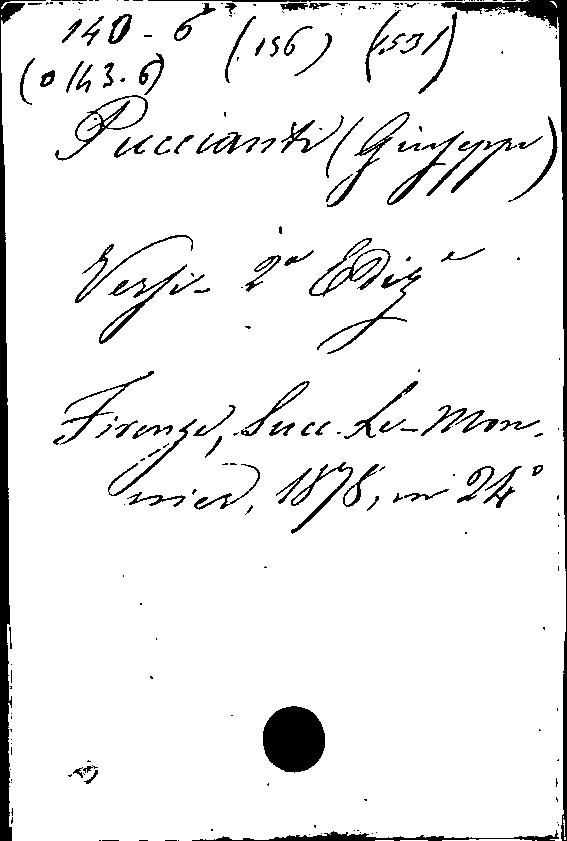 140-6 (156) (1531)
(0143.6)
Puccianti (Giuseppe)
Versi- 2ª Edizª
Firenze, Succ. Le-Mon-
nier, 1878, in 24°